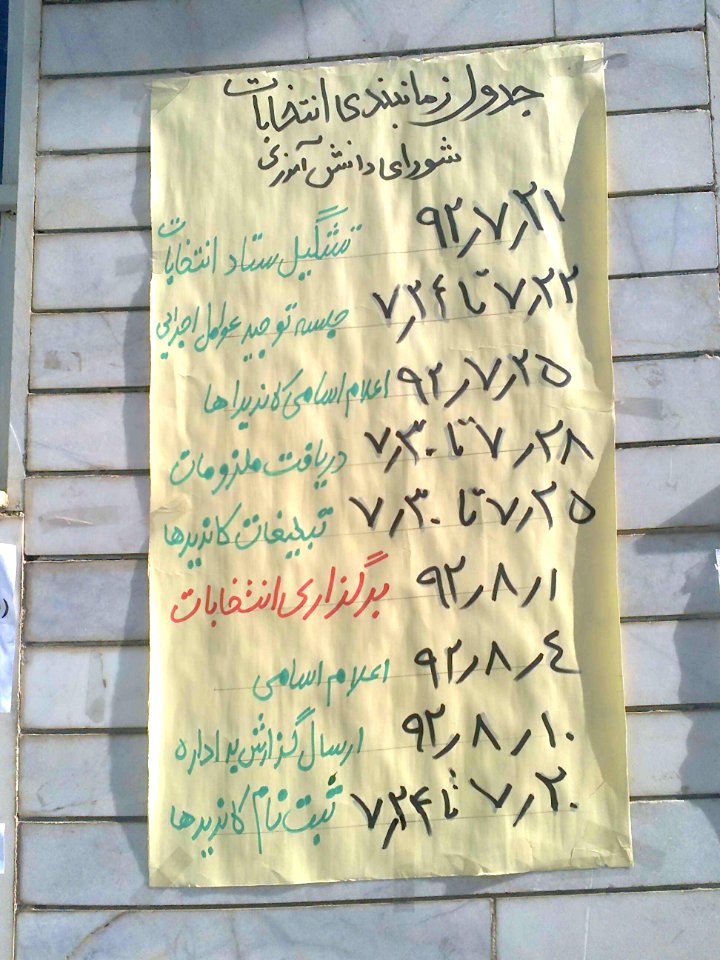 جدول زمانبندی انتخابات
شورای دانش آموزی
۹۲٫۷٫۲۱ تشکیل ستاد انتخابات
۷٫۲۲ تا ۷٫۲۴ جلسه توجیه عوامل اجرایی
۹۲٫۷٫۲۵ اعلام اسامی کاندیداها
۷٫۲۸ تا ۷٫۳۰ دریافت ملزومات
۷٫۲۵ تا ۷٫۳۰ تبلیغات کاندیدها
۹۲٫۸٫۱ برگزاری انتخابات
۹۲٫۸٫۴ اعلام اسامی
۹۲٫۸٫۱۰ ارسال گزارش به اداره
۷٫۲۰ تا ۷٫۲۴ ثبت نام کاندیدها